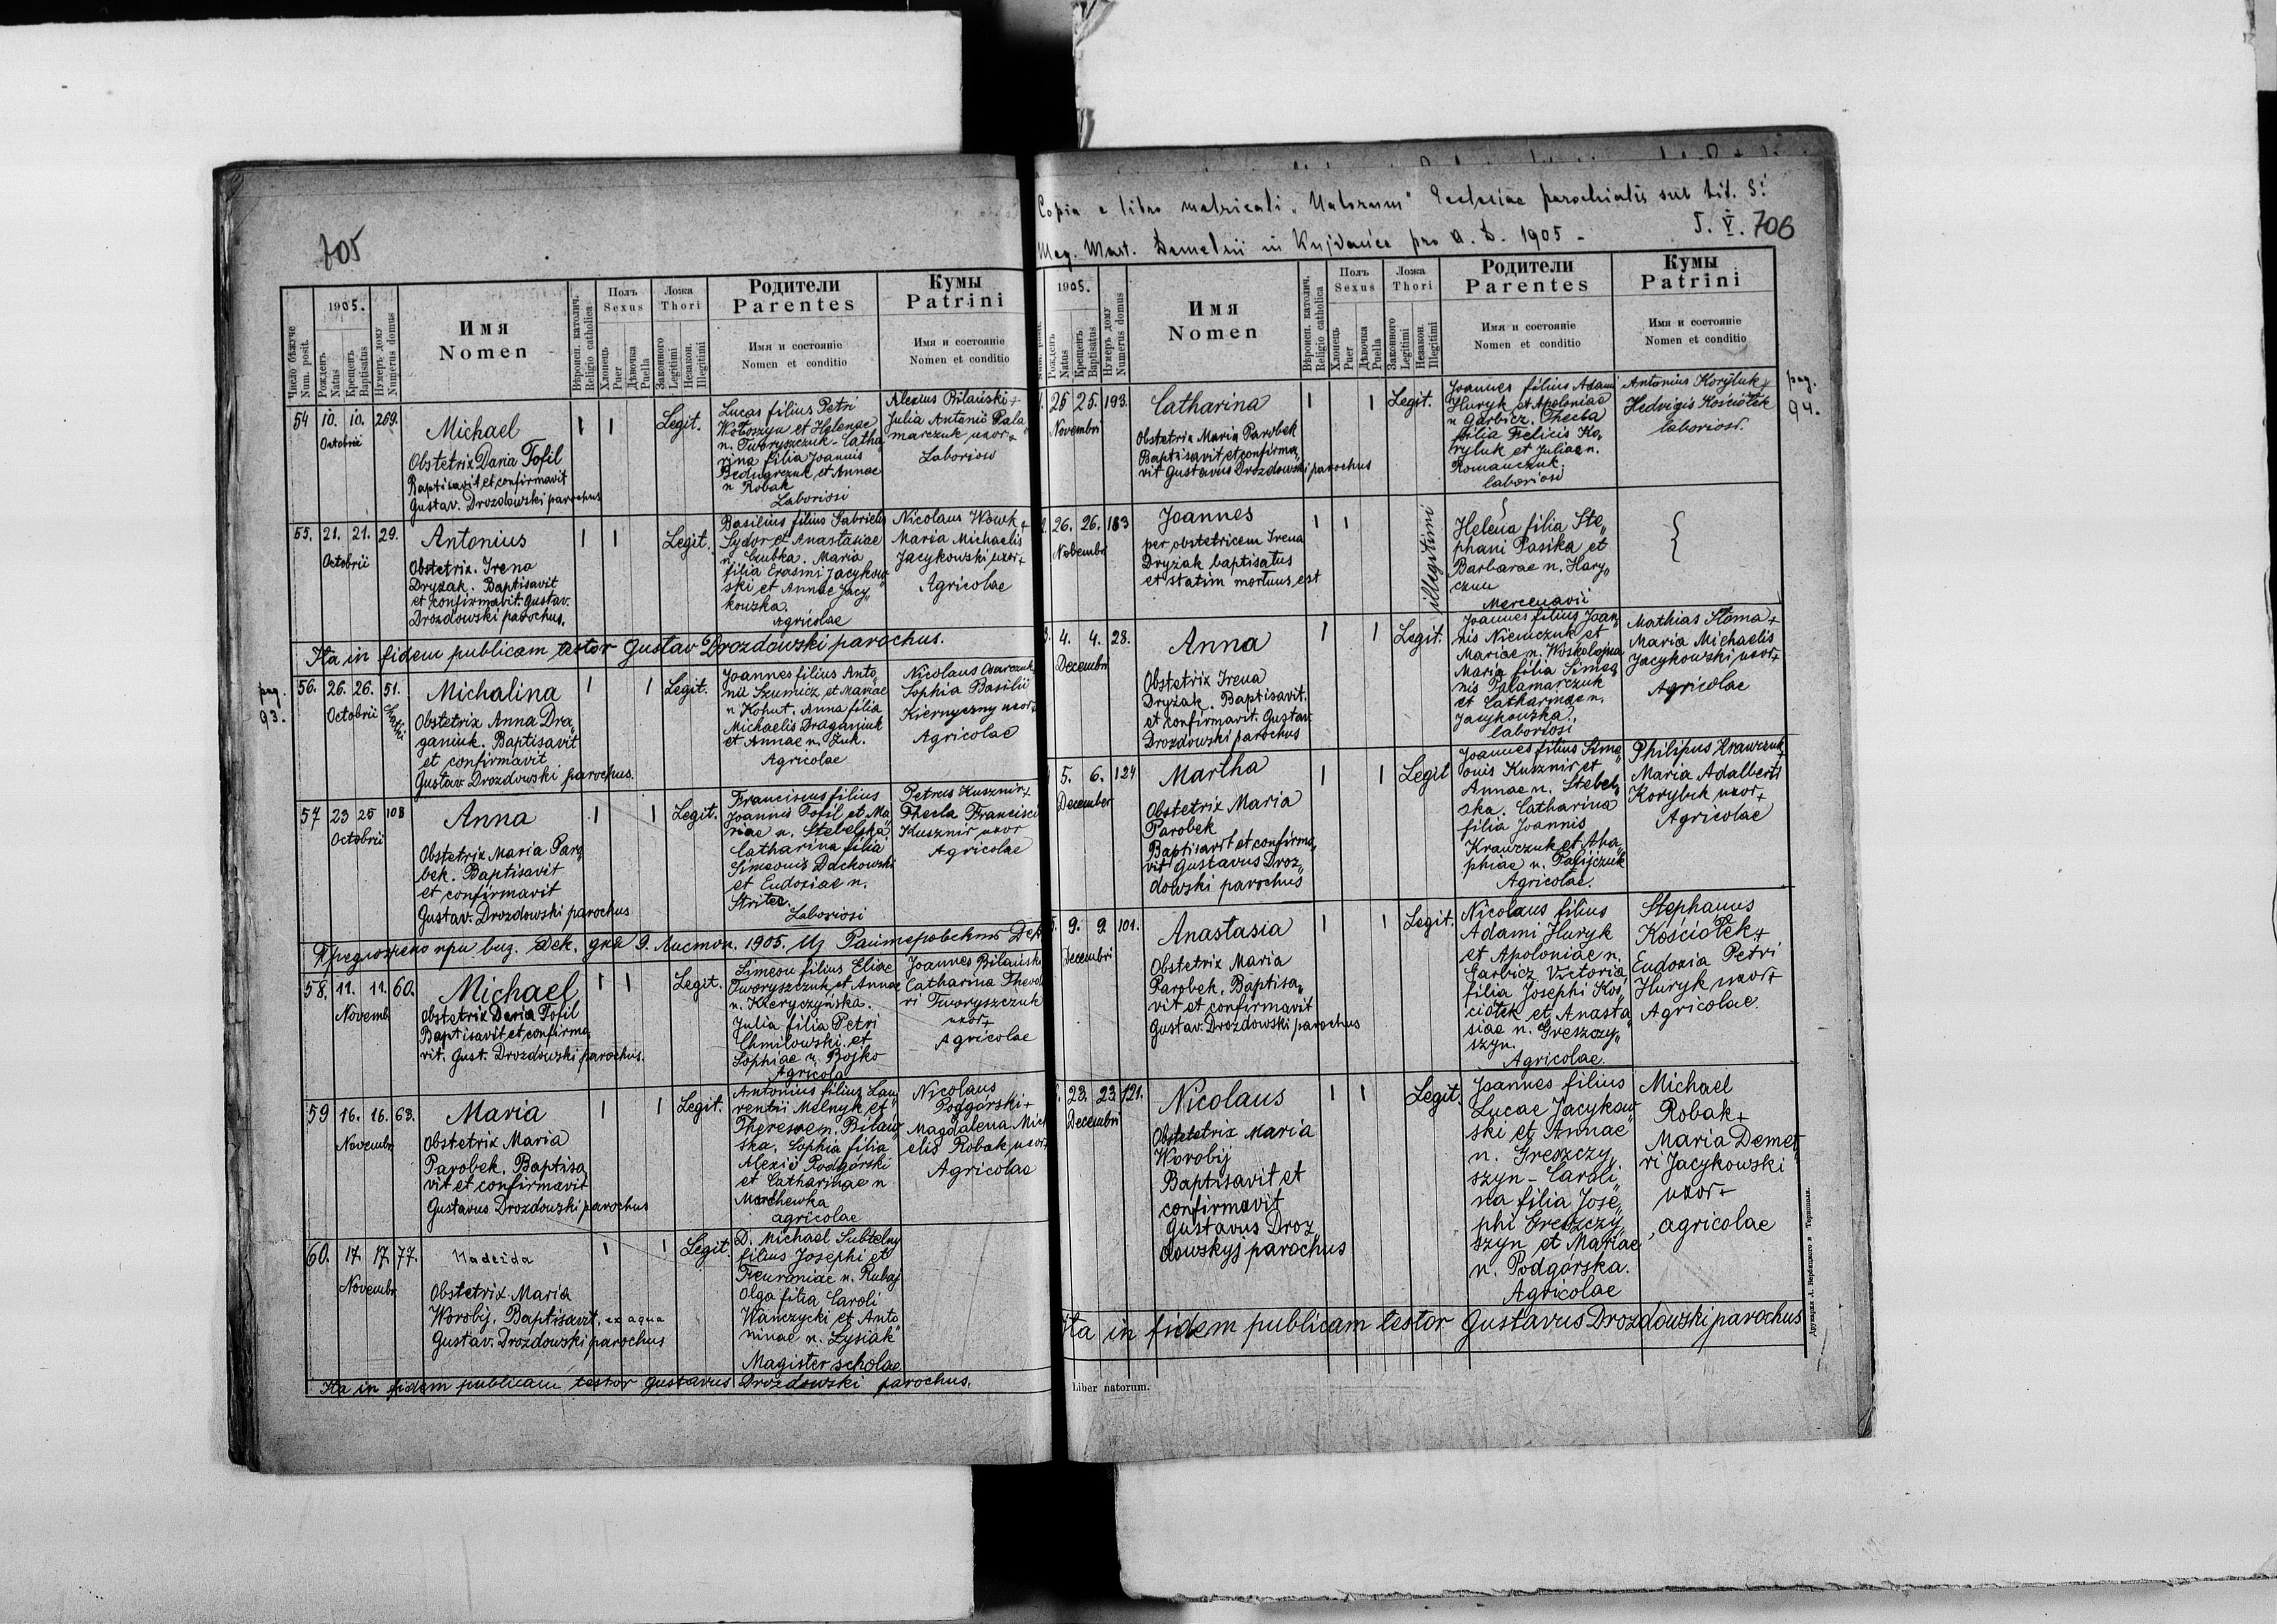 705
Число бѣжуче
Num. posit.
1905.
Рожденъ
Natus
Крещенъ
Baptisatus
Нумеръ дому
Numerus domus
Имя
Nomen
Вѣроисп. католич.
Religio catholica
Полъ
Sexus
Хлопець
Puer
Дѣвочка
Puella
Ложа
Thori
Законного
Legitimi
Незакон.
Illegitimi
Родители
Parentes
Имя и состояніе
Nomen et conditio
Кумы
Patrini
Имя и состояніе
Nomen et conditio
54 10. 10. 269.
Octobrii
Michael
Obstetrix Daria Tofil
Baptisavit et confirmavit
Gustav. Drozdowski parochus
1 1 Legit.
Lucas filius Petri
Wołoszyn et Helenae
n. Tworyszczuk - Catha„
rina filia Joannis
Bednarczuk et Annae
n Robak
Laboriosi
Alexius Bilański +
Julia Antonii Pala„
marczuk uxor +
Laboriosi
55. 21. 21. 29.
Octobrii
Antonius
Obstetrix. Irena
Dryżak. Baptisavit
et confirmavit. Gustav.
Drozdowski parochus.
1 1 Legit.
Basilius filius Gabrielis
Sydor et Anastasiae
n. Czubka. Maria
filia Erasmi Jacykow„
ski et Annae Jacy„
kowska.
Agricolae
Nicolaus Wowk +
Maria Michaelis
Jacykowski uxor +
Agricolae
Ita in fidem publicam testor Gustav Drozdowski parochus.
pag.
93.
56. 26. 26. 51.
Octobrii
Michalina
Obstetrix Anna Dra„
ganiuk. Baptisavit
et confirmavit
Gustav. Drozdowski parochus.
1 1 Legit.
Joannes filius Anto„
nii Szumicz et Mariae
n. Kohut. Anna filia
Michaelis Draganiuk
et Annae n. Żuk.
Agricolae
Nicolaus
Sophia Basilii
Kiernyczny uxor +
Agricolae
57 23 25 108
Octobrii
Anna
Obstetrix Maria Paro„
bek. Baptisavit
et confirmavit
Gustav. Drozdowski parochus
1 1 Legit.
Franciscus filius
Joannis Tofil et Ma„
riae n. Stebelska
Catharina filia
Simeonis Dackowski
et Eudoxiae n.
Laboriosi
Petrus Kusznir +
Thecla Francisci
Kusznir uxor
Agricolae
Предложено при виз. Дек. дня 9. Листоп. 1905.
58. 11. 11. 60.
Novemb.
Michael
Obstetrix Daria Tofil
Baptisavit et confirma„
vit. Gust. Drozdowski parochus.
1 1 Legit.
Simeon filius Eliae
Tworyszczuk et Annae
n. Kteryczyńska.
Julia filia Petri
Chmilowski et
Sophiae n. Bojko
Agricola
Joannes Bilański
Catharina Theodo
ri Tworyszczuk
uxor +
Agricolae
59 16. 16. 63.
Novembr.
Maria
Obstetrix Maria
Parobek. Baptisa„
vit et confirmavit
Gustavus Drozdowski parochus
1 1 Legit.
Antonius filius Lau„
rentii Melnyk et
Theresiae n. Bilań„
ska. Sophia filia
Alexii Podgórski
et Catharinae n
Marchewka
agricolae
Nicolaus
Podgórski +
Magdalena Mich
elis Robak uxor +
Agricolae
60. 17. 17. 77.
Novembr.
Nadeida
Obstetrix Maria
Worobij. Baptisavit, ex aqua
Gustav. Drozdowski parochus
1 1 Legit.
D. Michael Subtelny
filius Josephi et
n. Rubaj
Olga filia Caroli
Wańczycki et Anto„
ninae n. Łysiak
Magister scholae.
Ita in fidem publicam testor Gustavus Drozdowski parochus.
Copia e libro metricali „Natorum" Ecclesiae parochialis sub tit. S.
Mag. Mart. Demetrii in Kujdańce pro a. D. 1905 -
T. V. 706
1905.
Рожденъ
Natus
Крещенъ
Baptisatus
Нумеръ дому
Numerus domus
Имя
Nomen
Вѣроисп. католич.
Religio catholica
Полъ
Sexus
Хлопець
Puer
Дѣвочка
Puella
Ложа
Thori
Законного
Legitimi
Незакон.
Illegitimi
Родители
Parentes
Имя и состояніе
Nomen et conditio
Кумы
Patrini
Имя и состояніе
Nomen et conditio
pag.
94.
25 25. 193.
Novembri
Catharina
Obstetrix Maria Parobek
Baptisavit et confirma„
vit Gustavus Drozdowski parochus
1 1 Legit.
Joannes filius Adami
Huryk et Apoloniae
n Garbicz. Thecla
filia Felicis Ko„
ryluk et Juliae n.
Romanczuk.
laboriosi
Antonius Koryluk +
Hedvigis Kościółek
laboriosi.
26. 26. 183
Novembr
Joannes
per obstetricem Irena
Dryżak baptisatus
et statim mortuus est
1 1 illegitimi
Helena filia Ste„
phani Pasika et
Barbarae n. Hary„
czun
Mercenarii
4. 4. 28.
Decembri
Anna
Obstetrix Irena
Dryżak. Baptisavit.
et confirmavit. Gustav.
Drozdowski parochus
1 1 Legit.
Joannes filius Joan„
nis Niemczuk et
Mariae n. Woskolojna
Maria filia Simeo„
nis Palamarczuk
et Catharinae n.
Jacykowska.
laboriosi
Mathias Słoma +
Maria Michaelis
Jacykowski uxor +
Agricolae
5. 6. 124
December
Martha
Obstetrix Maria
Parobek
Baptisavit et confirma„
vit Gustavus Droz„
dowski parochus
1 1 Legit
Joannes filius Sime„
onis Kusznir et
Annae n. Stebel„
ska. Catharina
filia Joannis
Krawczuk et Aha„
phiae n. Palijczuk
Agricolae.
Philipus Krawczuk +
Maria Adalberti
Koryluk uxor +
Agricolae
9. 9 101.
Decembri
Anastasia
Obstetrix Maria
Parobek. Baptisa„
vit et confirmavit
Gustav. Drozdowski parochus
1 1 Legit.
Nicolaus filius
Adami Huryk
et Apoloniae n.
Garbicz Victoria
filia Josephi Koś„
ciółek et Anasta„
siae n. Greszczy„
szyn.
Agricolae.
Stephanus
Kościółek +
Eudoxia Petri
Huryk uxor +
Agricolae.
23. 23 121.
Decembri
Nicolaus
Obstetetrix Maria
Worobij
Baptisavit et
confirmavit
Gustavus Droz„
dowskyj parochus
1 1 Legit.
Joannes filius
Lucae Jacykow„
ski et Annae
n. Greszczy„
szyn - Caroli„
na filia Jose„
phi Greszczy„
szyn et Mariae
n. Podgórska.
Agricolae
Michael
Robak +
Maria Demet„
ri Jacykowski
uxor +
agricolae
Ita in fidem publicam testor Gustavus Drozdowski parochus
Liber natorum.
Друкарня Л. Вербицкого в Тернополи.